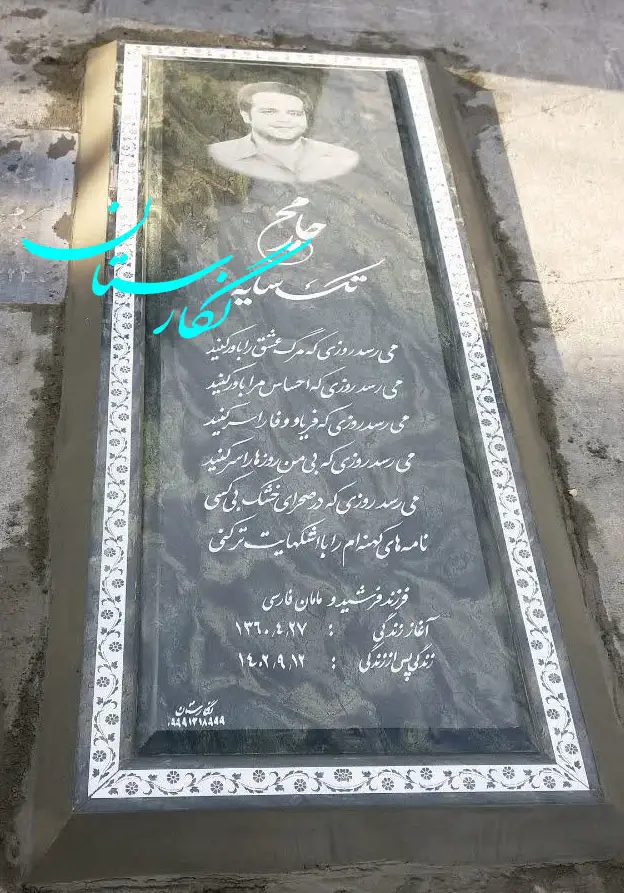 جامخ
تک سایه
نگارستان
می رسد روزی که مرگ عشق را باور کنید
می رسد روزی که احساس مرا باور کنید
می رسد روزی که فریاد وفا را سر کنید
می رسد روزی که بی من روزها را سر کنید
می رسد روزی که در صحرای خشک بی کسی
نامه های کهنه ام را با اشکهایت تر کنی
فرزند فرشید و مامان فارسی
آغاز زندگی : ۱۳۶۰,۴,۲۷
زندگی پس از زندگی : ۱۴۰۲,۹,۱۲
نگارستان
۰۹۹۹۱۳۱۸۹۹۹